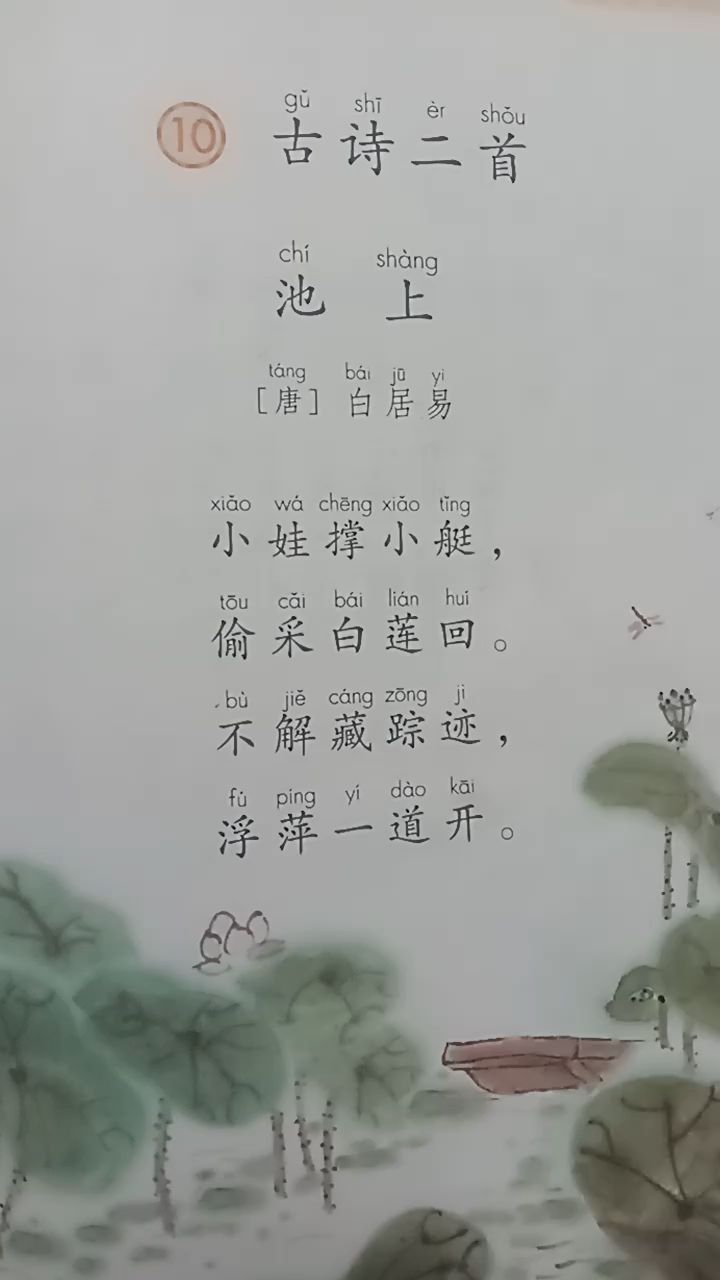 10
gǔ shī èr shǒu
古诗二首
chí shàng
池上
táng bái jū yì
[唐] 白居易
xiǎo wá chēng xiǎo tǐng
小娃撑小艇，
tōu cǎi bái lián huí
偷采白莲回。
bù jiě cáng zōng jì
不解藏踪迹，
fú píng yí dào kāi
浮萍一道开。